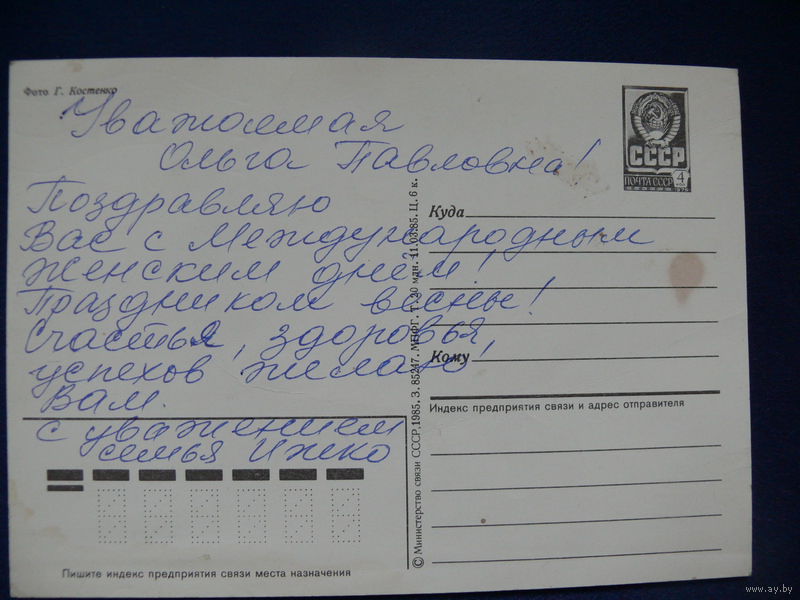 Фото Г. Костенко
Уважаемая
Ольга Павловна!
Поздравляю
Вас с Международным
женским днём!
Праздником весны!
Счастья, здоровья,
успехов желаю
Вам.
с уважением
семья Ижко
СССР
ПОЧТА СССР
4
КОП
1976
Куда
Кому
Индекс предприятия связи и адрес отправителя
© Министерство связи СССР, 1985. З. 85247. МПФГ. Т. 20 млн. 11.03.85. Ц. 6 к.
Пишите индекс предприятия связи места назначения
www.ay.by